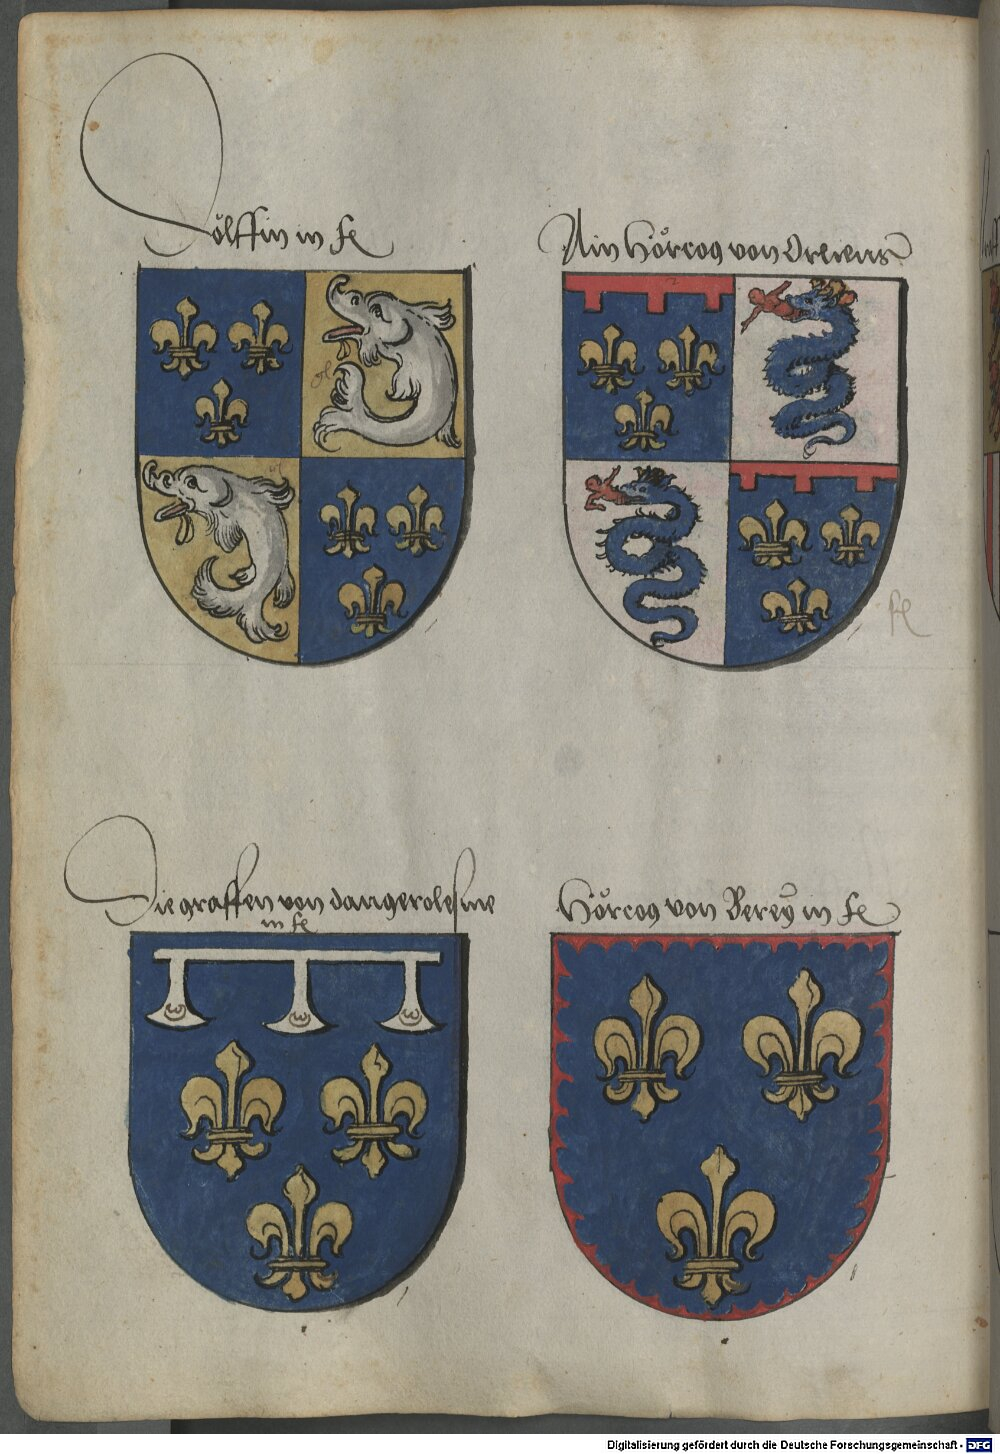 Dölffin in fr
Ain Hörczog von Orliens
Die graffen von dangerolesme
in fr
Hörczog von Berey in fr
Digitalisierung gefördert durch die Deutsche Forschungsgemeinschaft - DFG